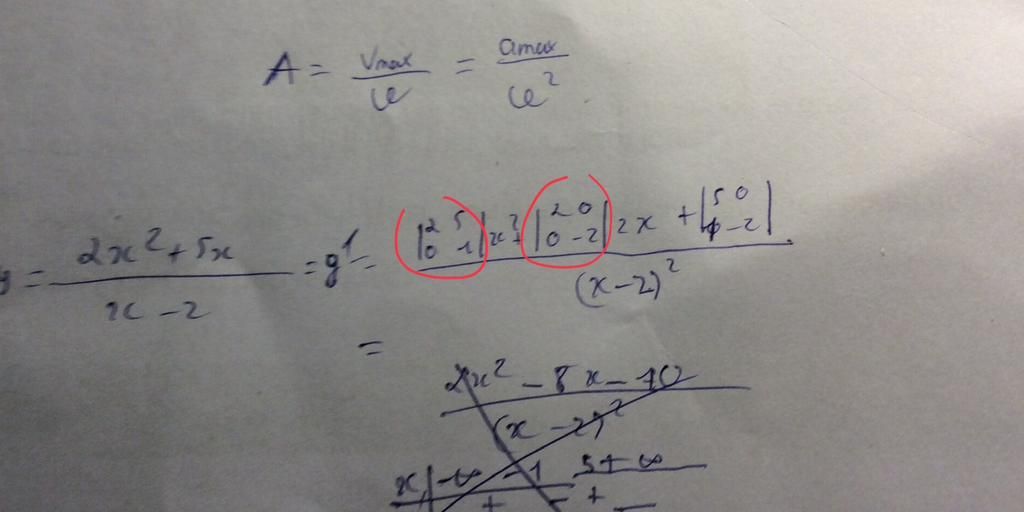 A = Vmax / ω = amax / ω²
y = 2x² + 5x / x - 2 = y' = |2 5 / 0 1| x² + |2 0 / 0 -2| 2x + |5 0 / 1 -2| / (x - 2)²
= 2x² - 8x - 10 / (x - 2)²
x | -∞ -1 5 + ∞
+ - +